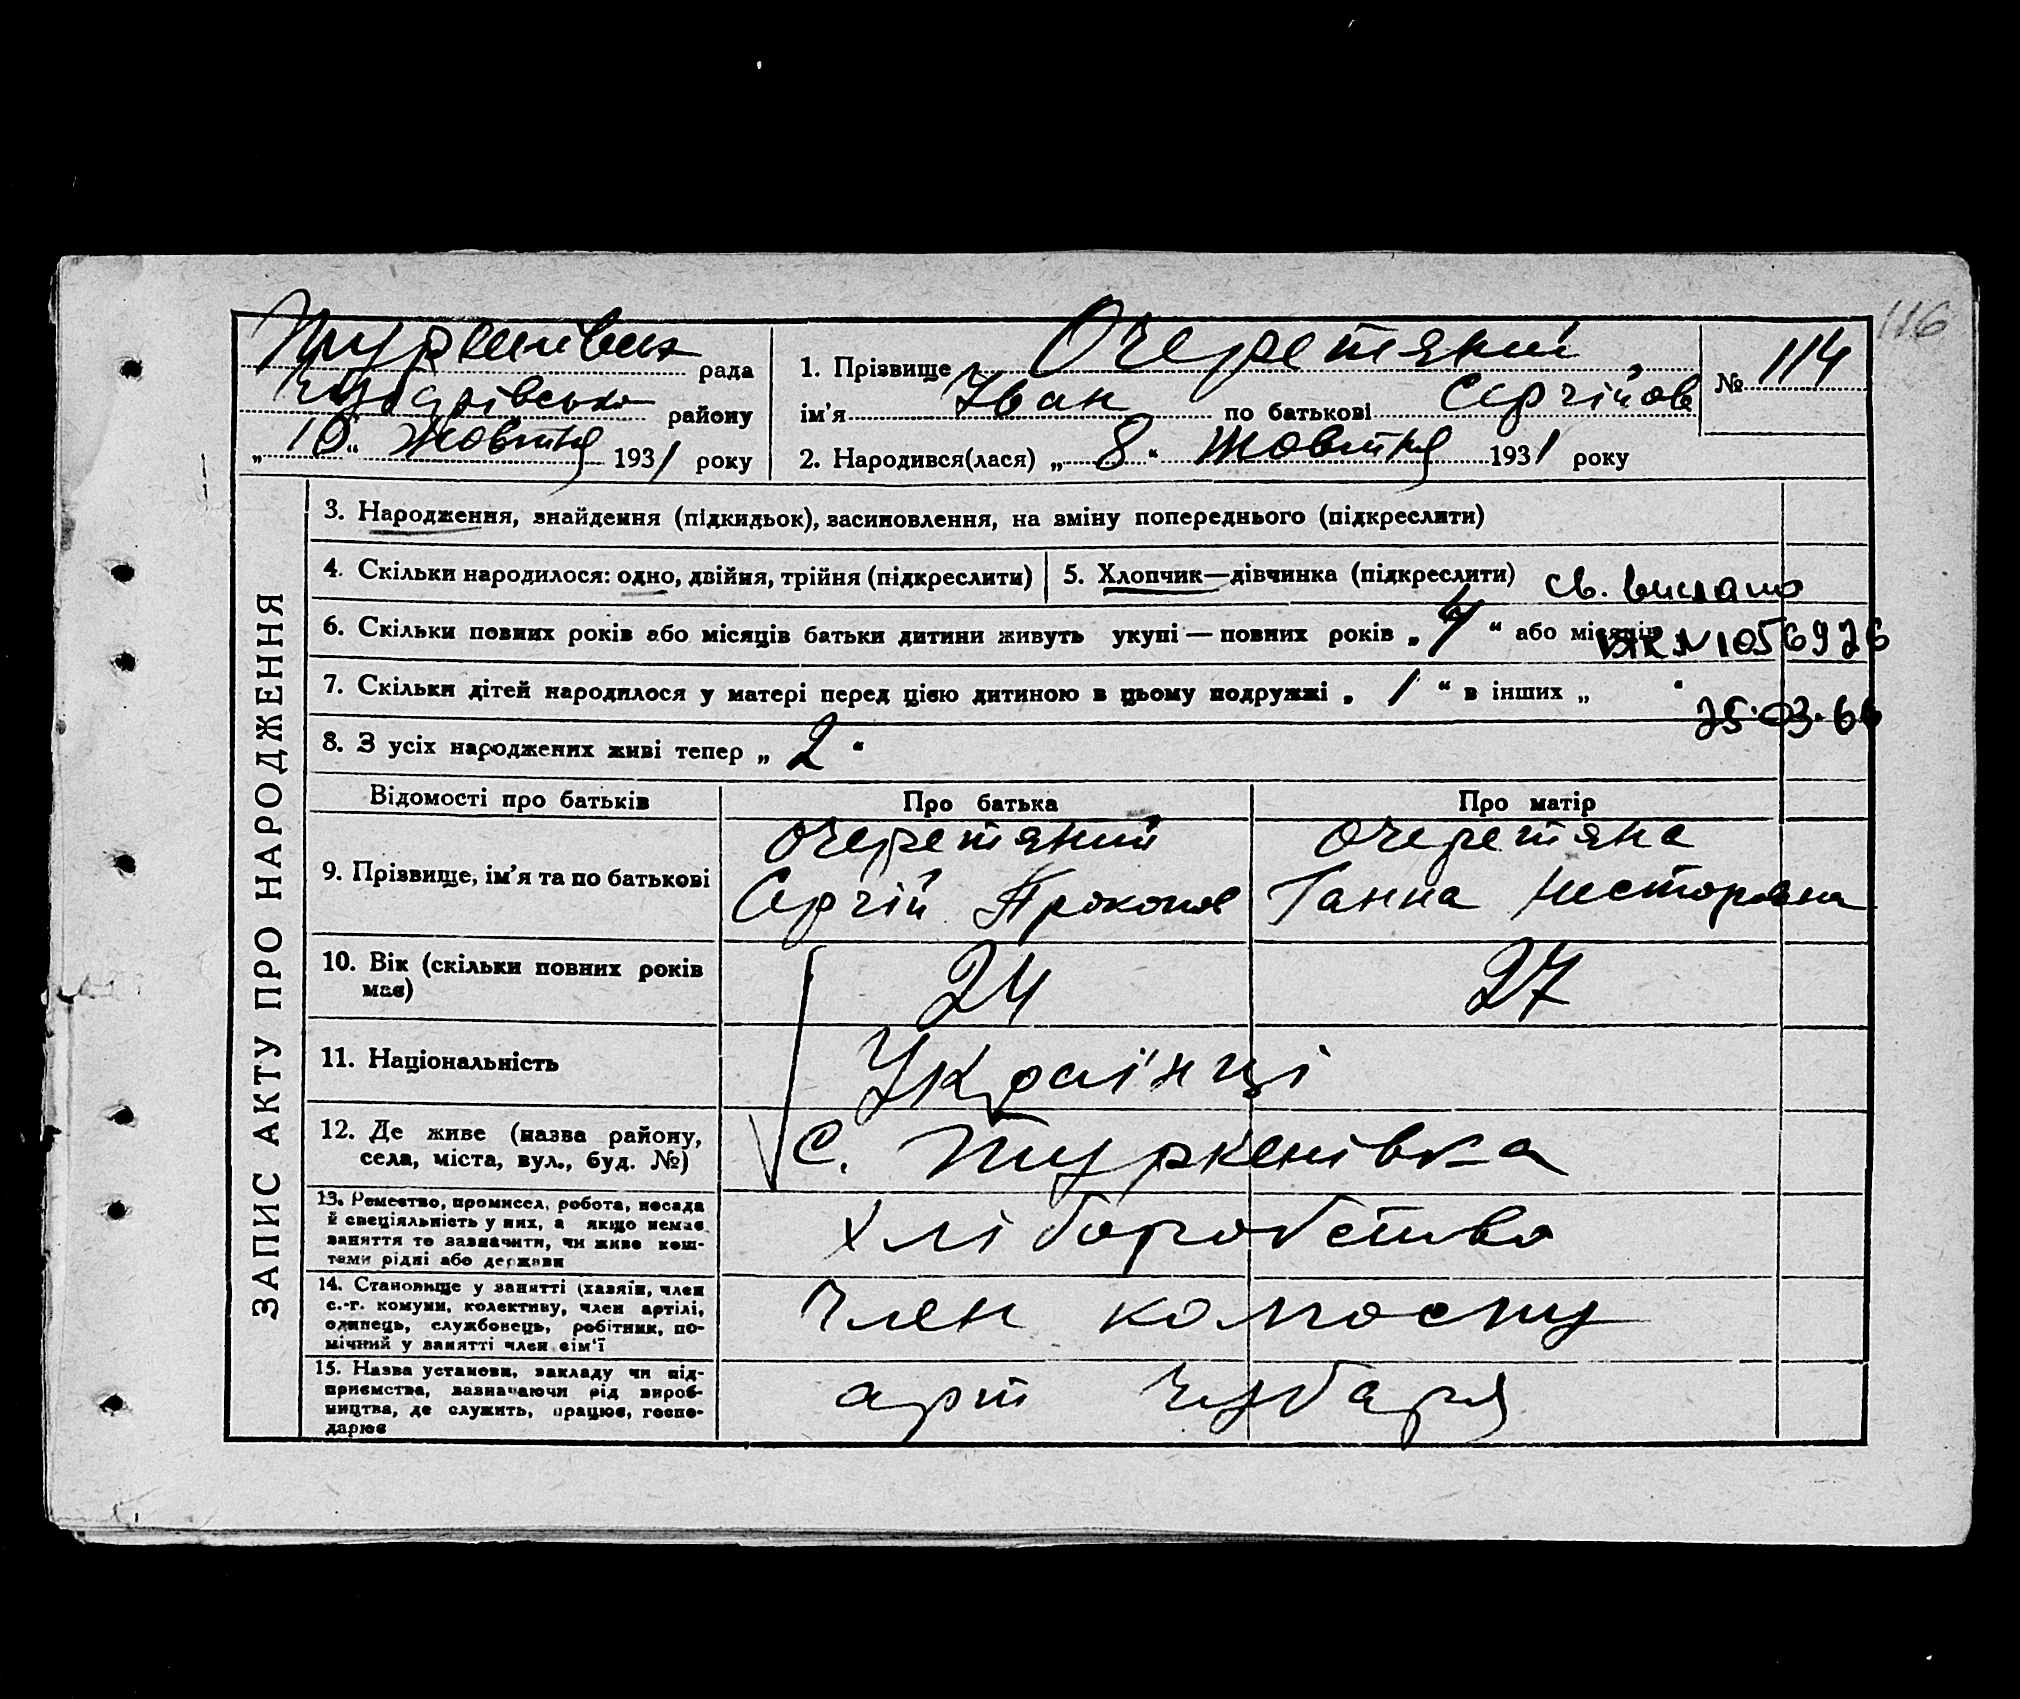 116
Туркенівка рада
Чубарівсько району
„ 10 “ Жовтня 1931 року
1. Прізвище Очеретяний
ім’я Іван по батькові Сергійов
№ 114
2. Народився(лася) „ 8 “ Жовтня 1931 року
ЗАПИС АКТУ ПРО НАРОДЖЕННЯ
3. Народження, знайдення (підкидьок), засиновлення, на зміну попереднього (підкреслити)
4. Скільки народилося: одно, двійня, трійня (підкреслити)
5. Хлопчик—дівчинка (підкреслити)
св. вислано
6. Скільки повних років або місяців батьки дитини живуть укупі — повних років „ 4 “ або місяців
№ 1056926
7. Скільки дітей народилося у матері перед цією дитиною в цьому подружжі „ 1 “ в інших „ “
25.03.66
8. З усіх народжених живі тепер „ 2 “
Відомості про батьків Про батька Про матір
9. Прізвище, ім’я та по батькові
Очеретяний
Сергій Прокопов
Очеретяна
Ганна Несторовна
10. Вік (скільки повних років
має)
24 27
11. Національність
Українці
12. Де живе (назва району,
села, міста, вул., буд. №)
с. Туркенівка
13. Ремество, промисел, робота, посада
й спеціяльність у них, а якщо немає
заняття то зазначити, чи живе кош-
тами рідні або держави
Хліборобство
14. Становище у занятті (хазяїн, член
с.-г. комуни, колективу, член артілі,
одинець, службовець, робітник, по-
мічний у занятті член сім’ї
член колгоспу
15. Назва установи, закладу чи під-
приємства, зазначаючи рід вироб-
ництва, де служить, працює, госпо-
дарює
арт Чубаря